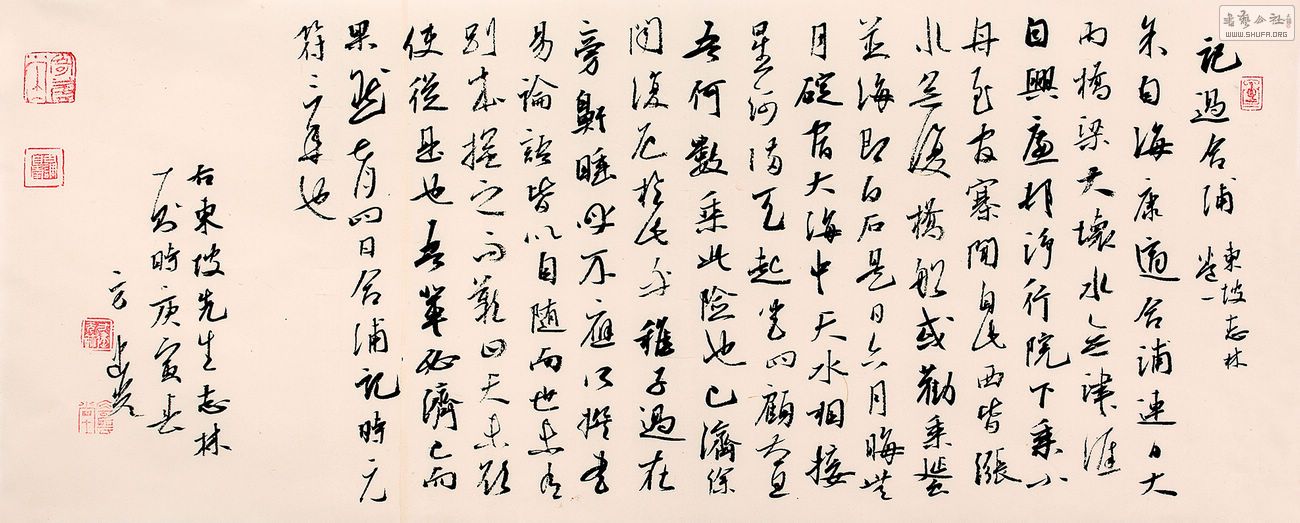 記過合浦 東坡志林
卷一
余自海康適合浦連日大
雨橋梁大壞水無津涯
自興廉村淨行院下乘小
舟至官寨聞自此西皆漲
水無復橋船或勸乘蜑
並海即白石是日六月晦無
月碇宿大海中天水相接
星河滿天起坐四顧太息
吾何數乘此險也已濟徐
聞復厄於此乎稚子過在
旁鼾睡呼不應所撰書
易論語皆以自隨而世未有
別本撫之而歎曰天未欲
使從是也吾輩必濟已而
果然七月四日合浦記時元
符三年也
右東坡先生志林
一則時庚寅春
書藝公社
WWW.SHUFA.ORG